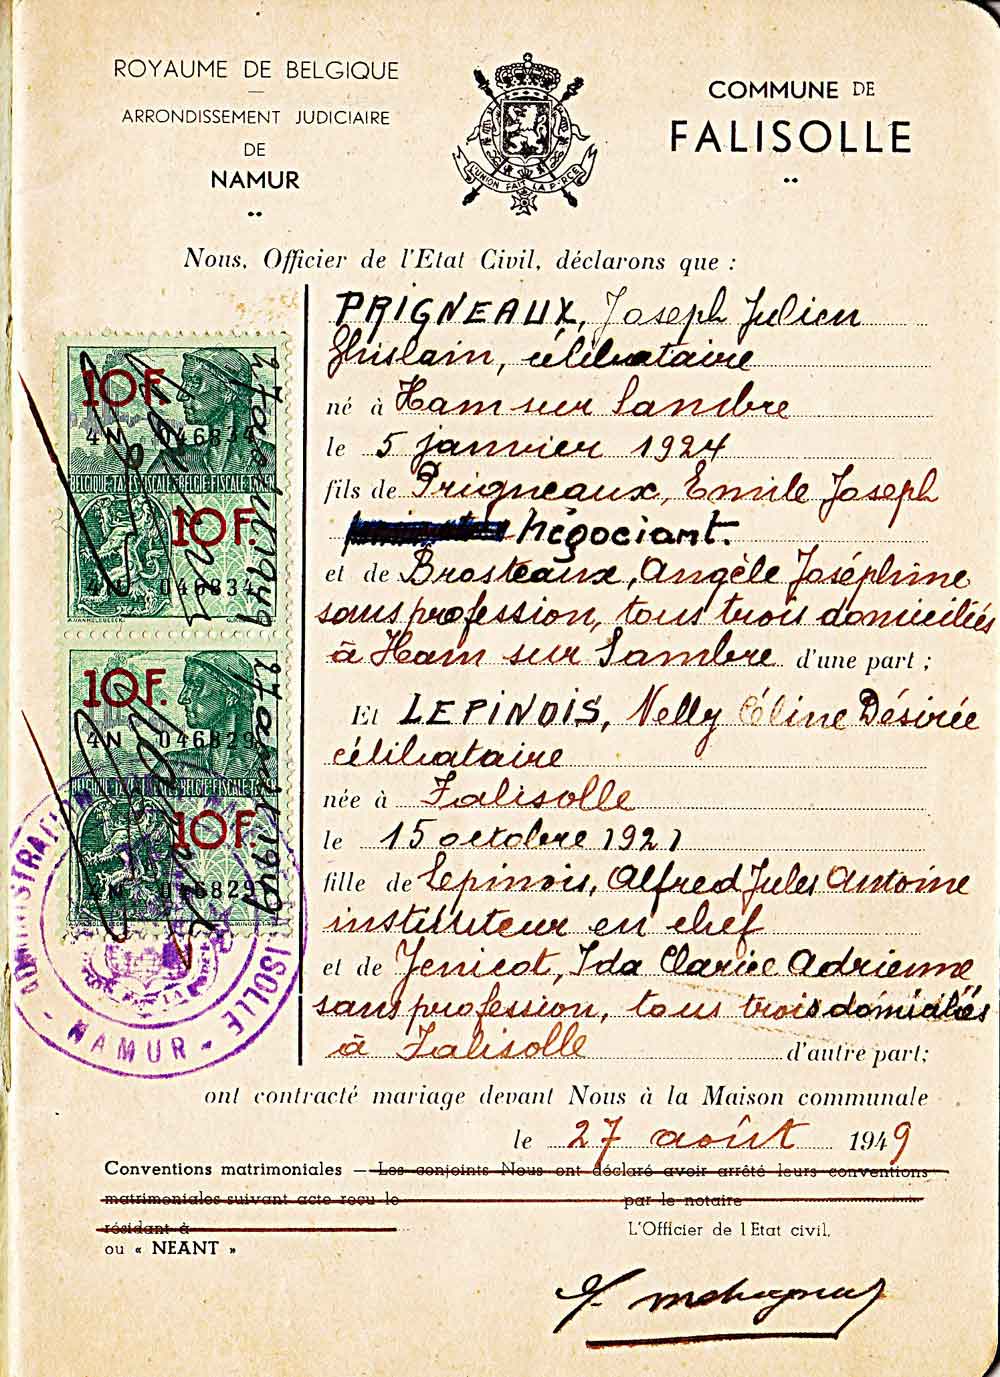 ROYAUME DE BELGIQUE
ARRONDISSEMENT JUDICIAIRE
DE
NAMUR
L'UNION FAIT LA FORCE
COMMUNE DE
FALISOLLE
Nous, Officier de l'Etat Civil, déclarons que :
PRIGNEAUX, Joseph Julien
Ghislain, célibataire
né à Ham sur Sambre
le 5 janvier 1924
fils de Prigneaux, Emile Joseph
Négociant.
et de Brosteaux, Angèle Joséphine
sans profession, tous trois domiciliés
à Ham sur Sambre d'une part ;
Et LEPINOIS, Nelly Céline Désirée
célibataire
née à Falisolle
le 15 octobre 1921
fille de Lepinois, Alfred Jules Antoine
instituteur en chef
et de Jenicot, Ida Adrienne
sans profession, tous trois domiciliés
à Falisolle d'autre part;
ont contracté mariage devant Nous à la Maison communale
le 27 août 1949
Conventions matrimoniales — Les conjoints Nous ont déclaré avoir arrêté leurs conventions
matrimoniales suivant acte reçu le par le notaire
résidant à
ou « NEANT »
L'Officier de l'Etat civil,
10F.
4N 046834
BELGIQUE-TAXES FISCALES-BELGIE-FISCALE
10F.
4N 046834
27 août 1949
10F.
4N 046829
BELGIQUE-TAXES FISCALES-BELGIE-FISCALE
10F.
4N 046829
27 août 1949
NAMUR